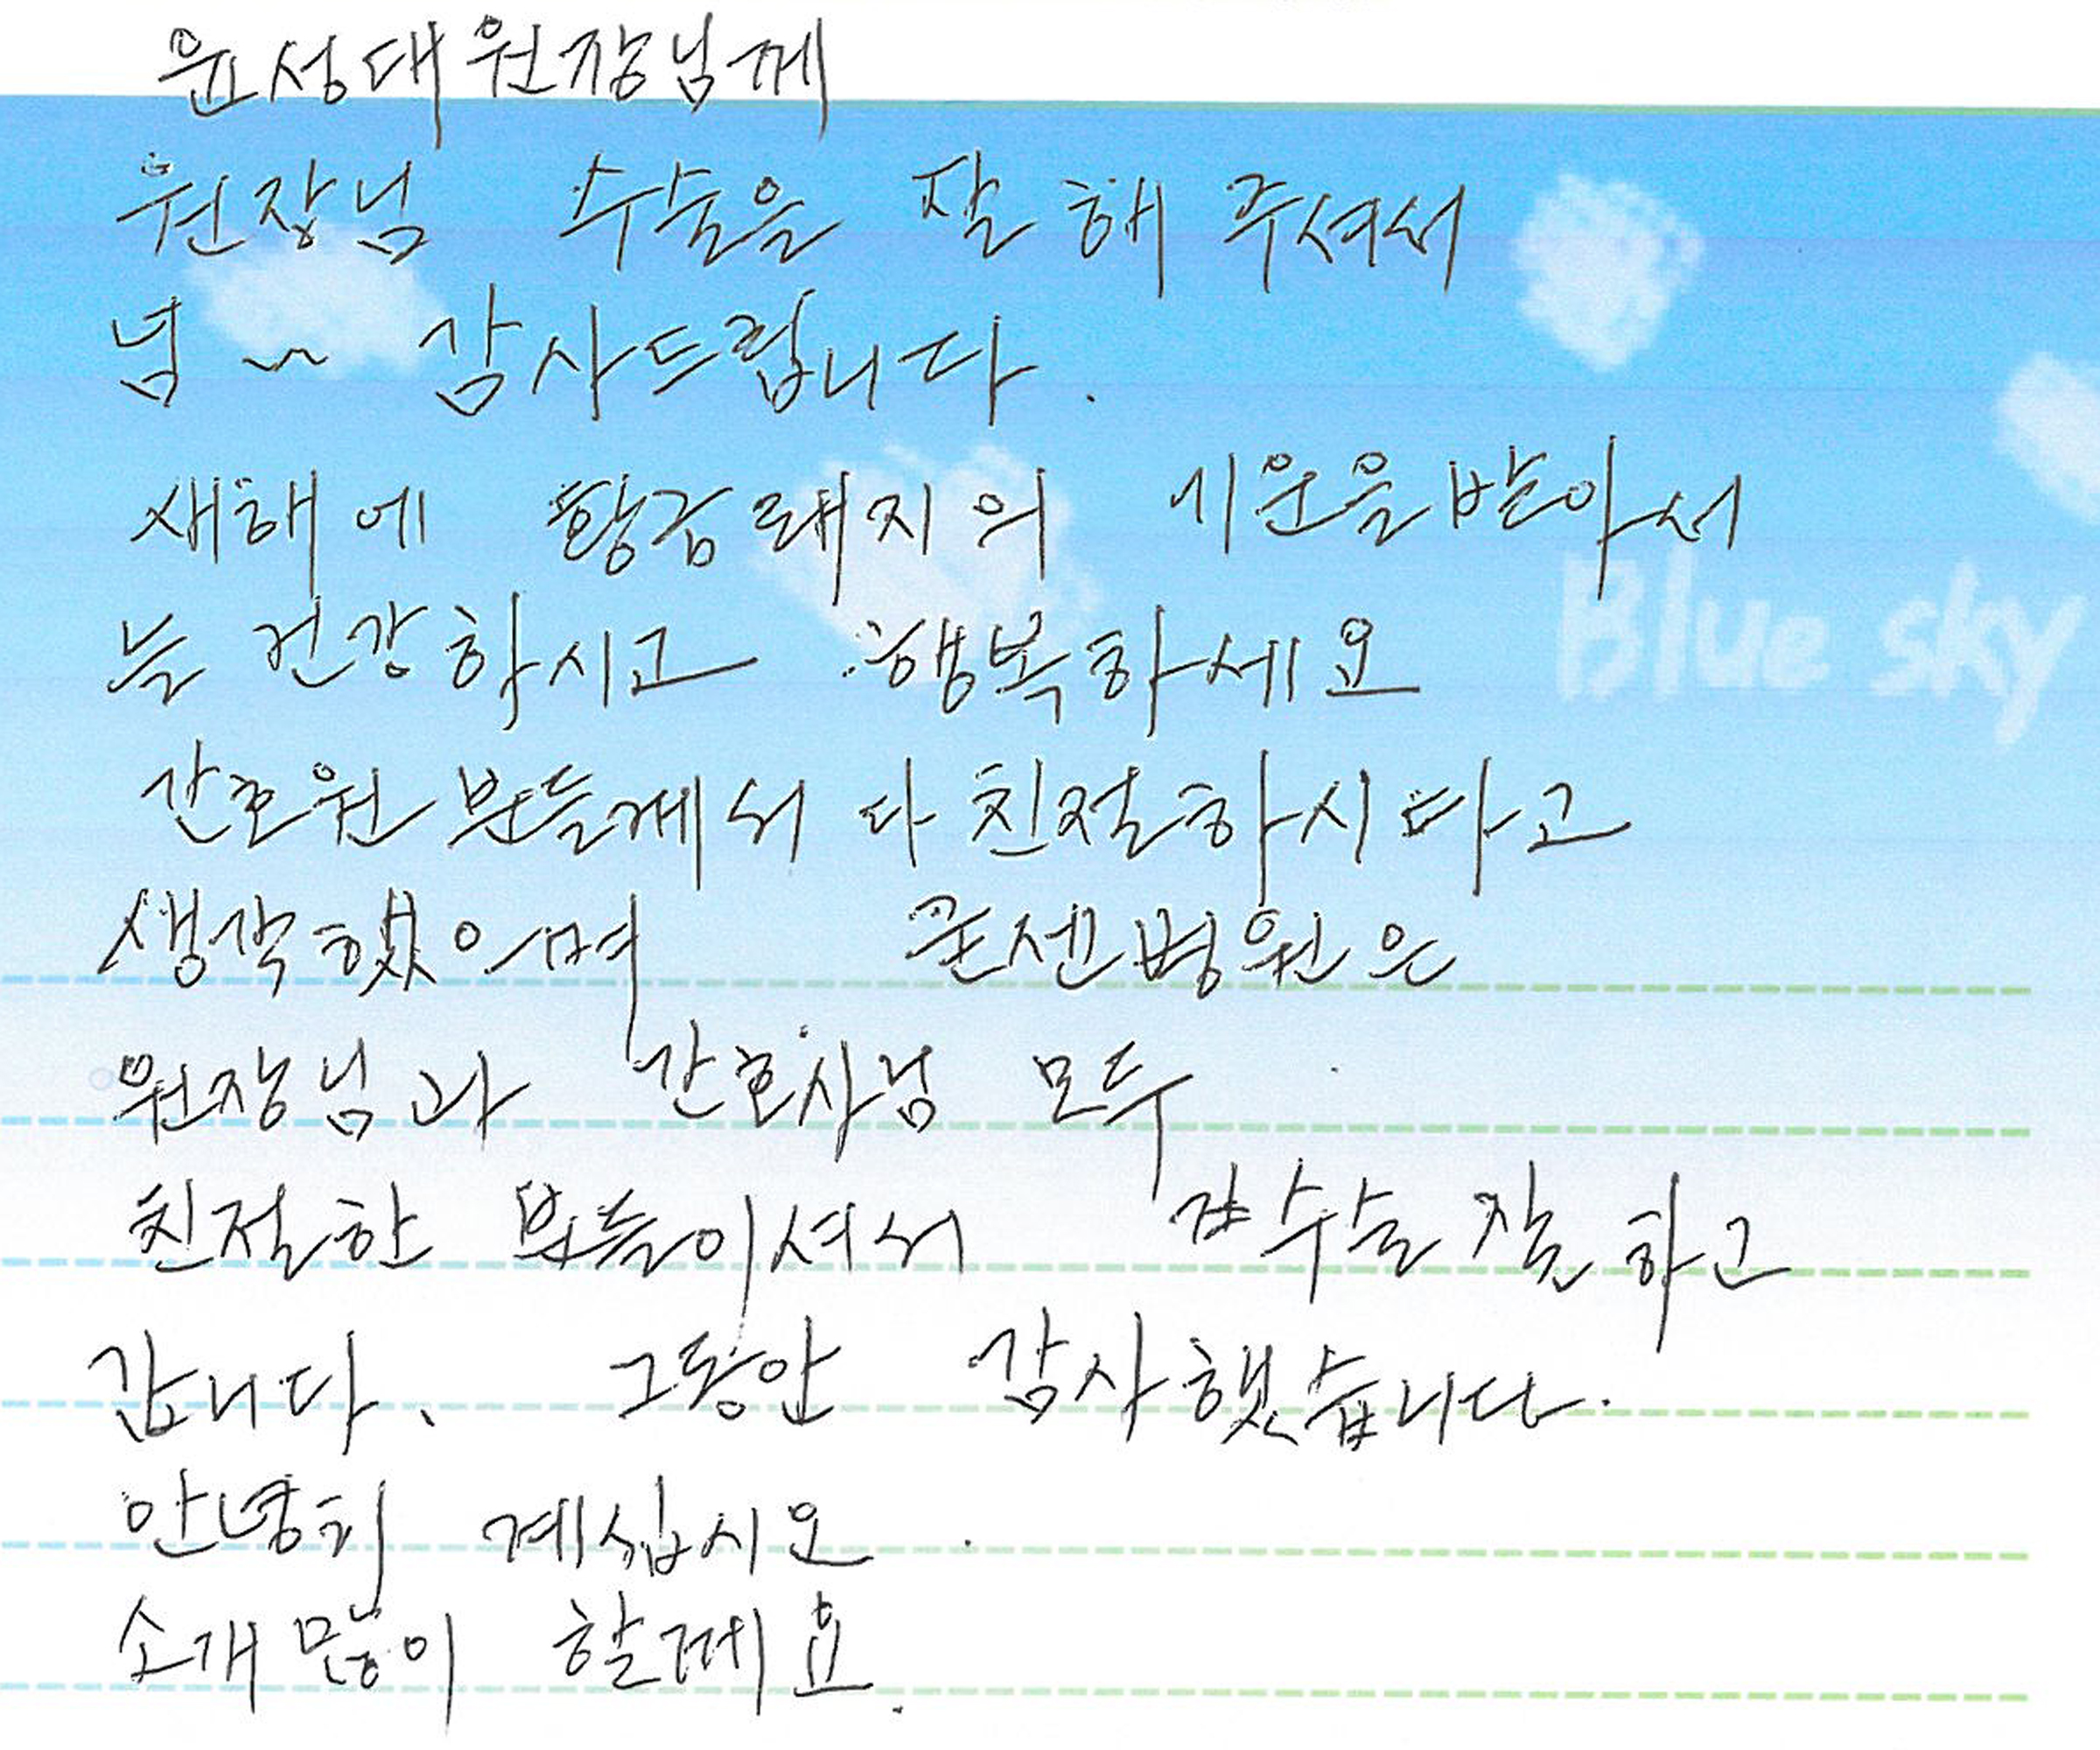 윤성대 원장님께
원장님 수술을 잘 해 주셔서
넘~ 감사드립니다.
새해에 황금돼지의 기운을 받아서
늘 건강하시고 행복하세요
Blue sky
간호원 분들께서 다 친절하시다고
생각했으며 굳센병원은
원장님과 간호사님 모두
친절한 분들이셔서 수술 잘 하고
갑니다. 그동안 감사했습니다.
안녕히 계십시오.
소개 많이 할께요.